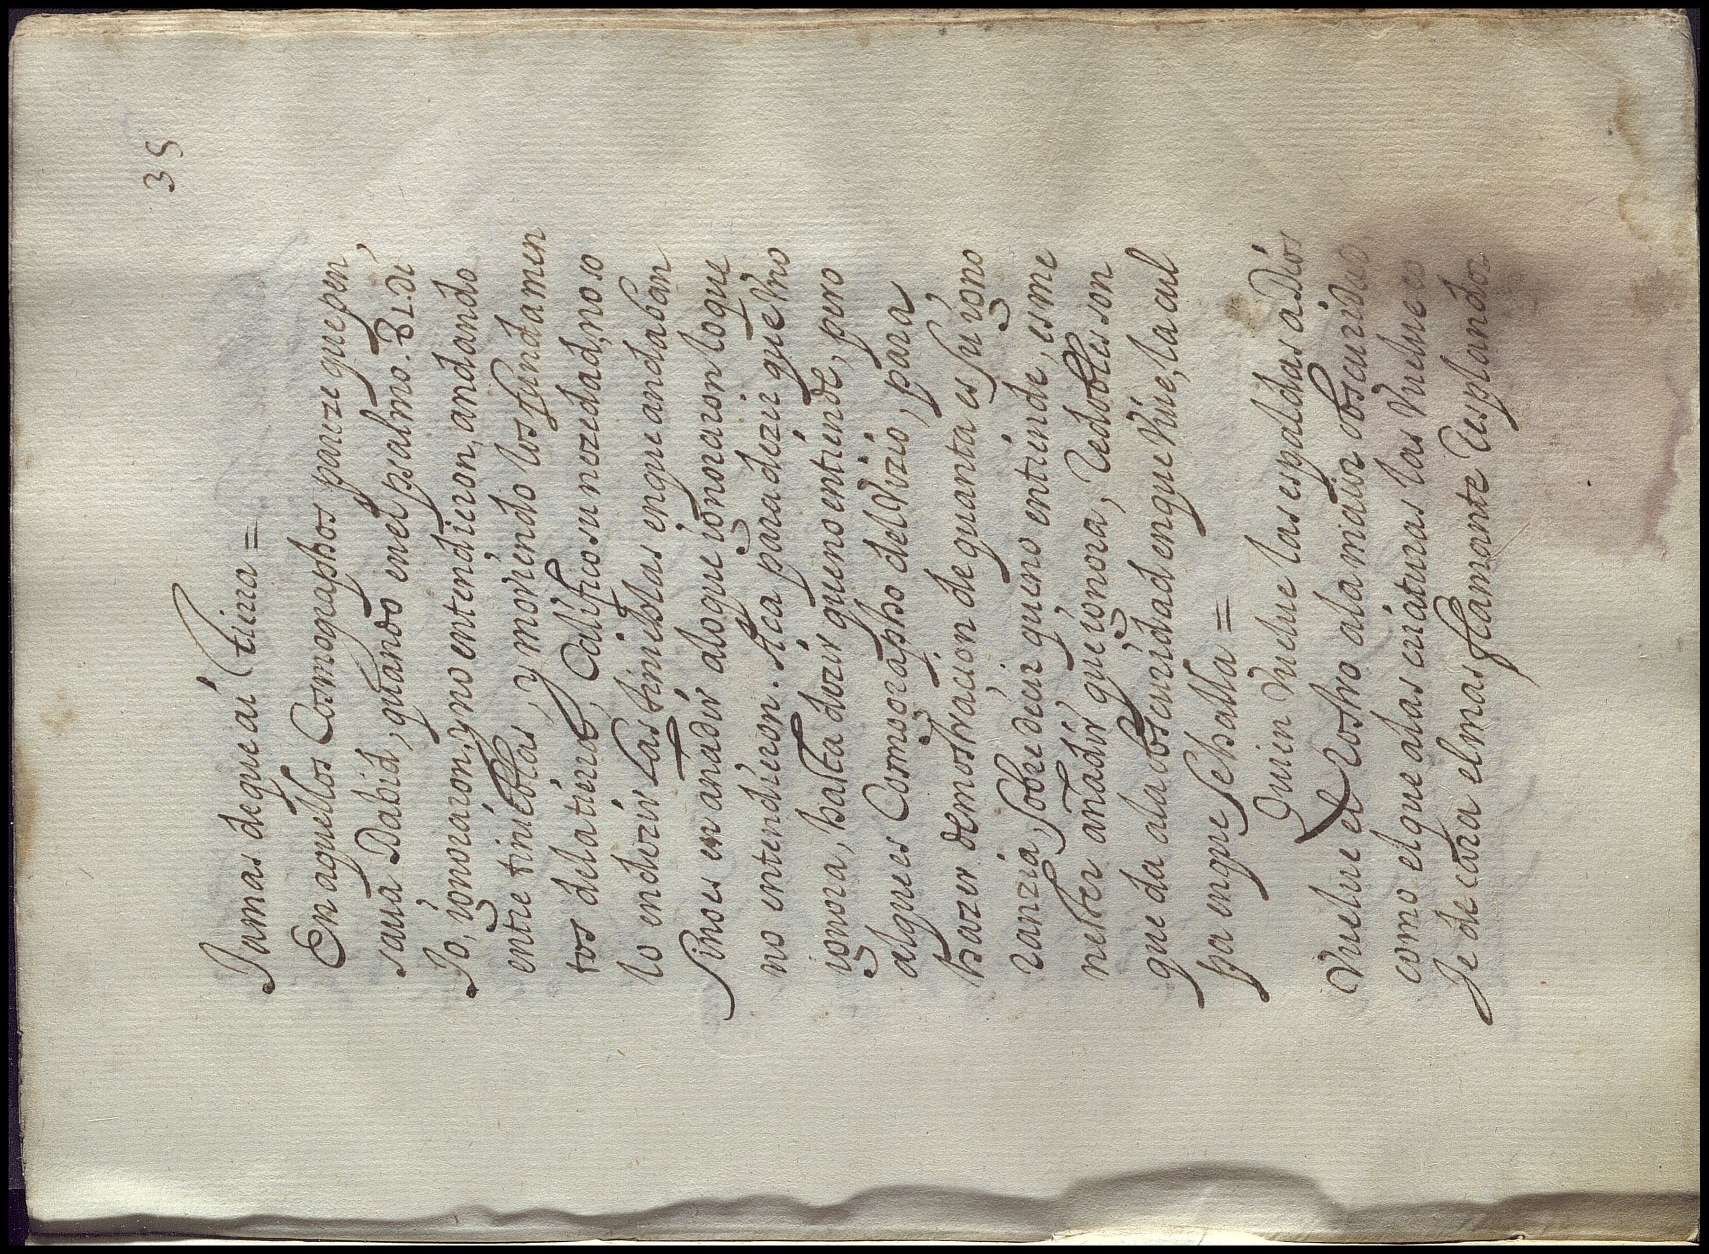 35
Jamas de que ai tierra =
En aquellos Cosmographos pareze que pen,
saua Dabid, quando en el psalmo. 81. di,
Jo, ignoraron, y no entendieron, andando
entre tinieblas, y moviendo los fundamen
tos de la tierra, Califico su nezedad, no so
lo en dezir las tinieblas en que andaban
sino es en anadir a lo que ignoraron lo que
no entendieron. Aca para dezir que Vno
ignora, basta dezir que no entiende, pero
al que es Cosmographo del Vizio, para
hazer demostracion de quanta es su igno
ranzia, sobre decir que no entiende, es me
nester añadir que ignora, redobles son
que da a la obscuridad en que Viue, la cul
pa en que se halla =
Quien Vuelue las espaldas a Dios
Vuelue el Rostro a la maior obscuridad,
como el que a las criaturas las Vuelue es
Je de cara el mas flamante resplandor